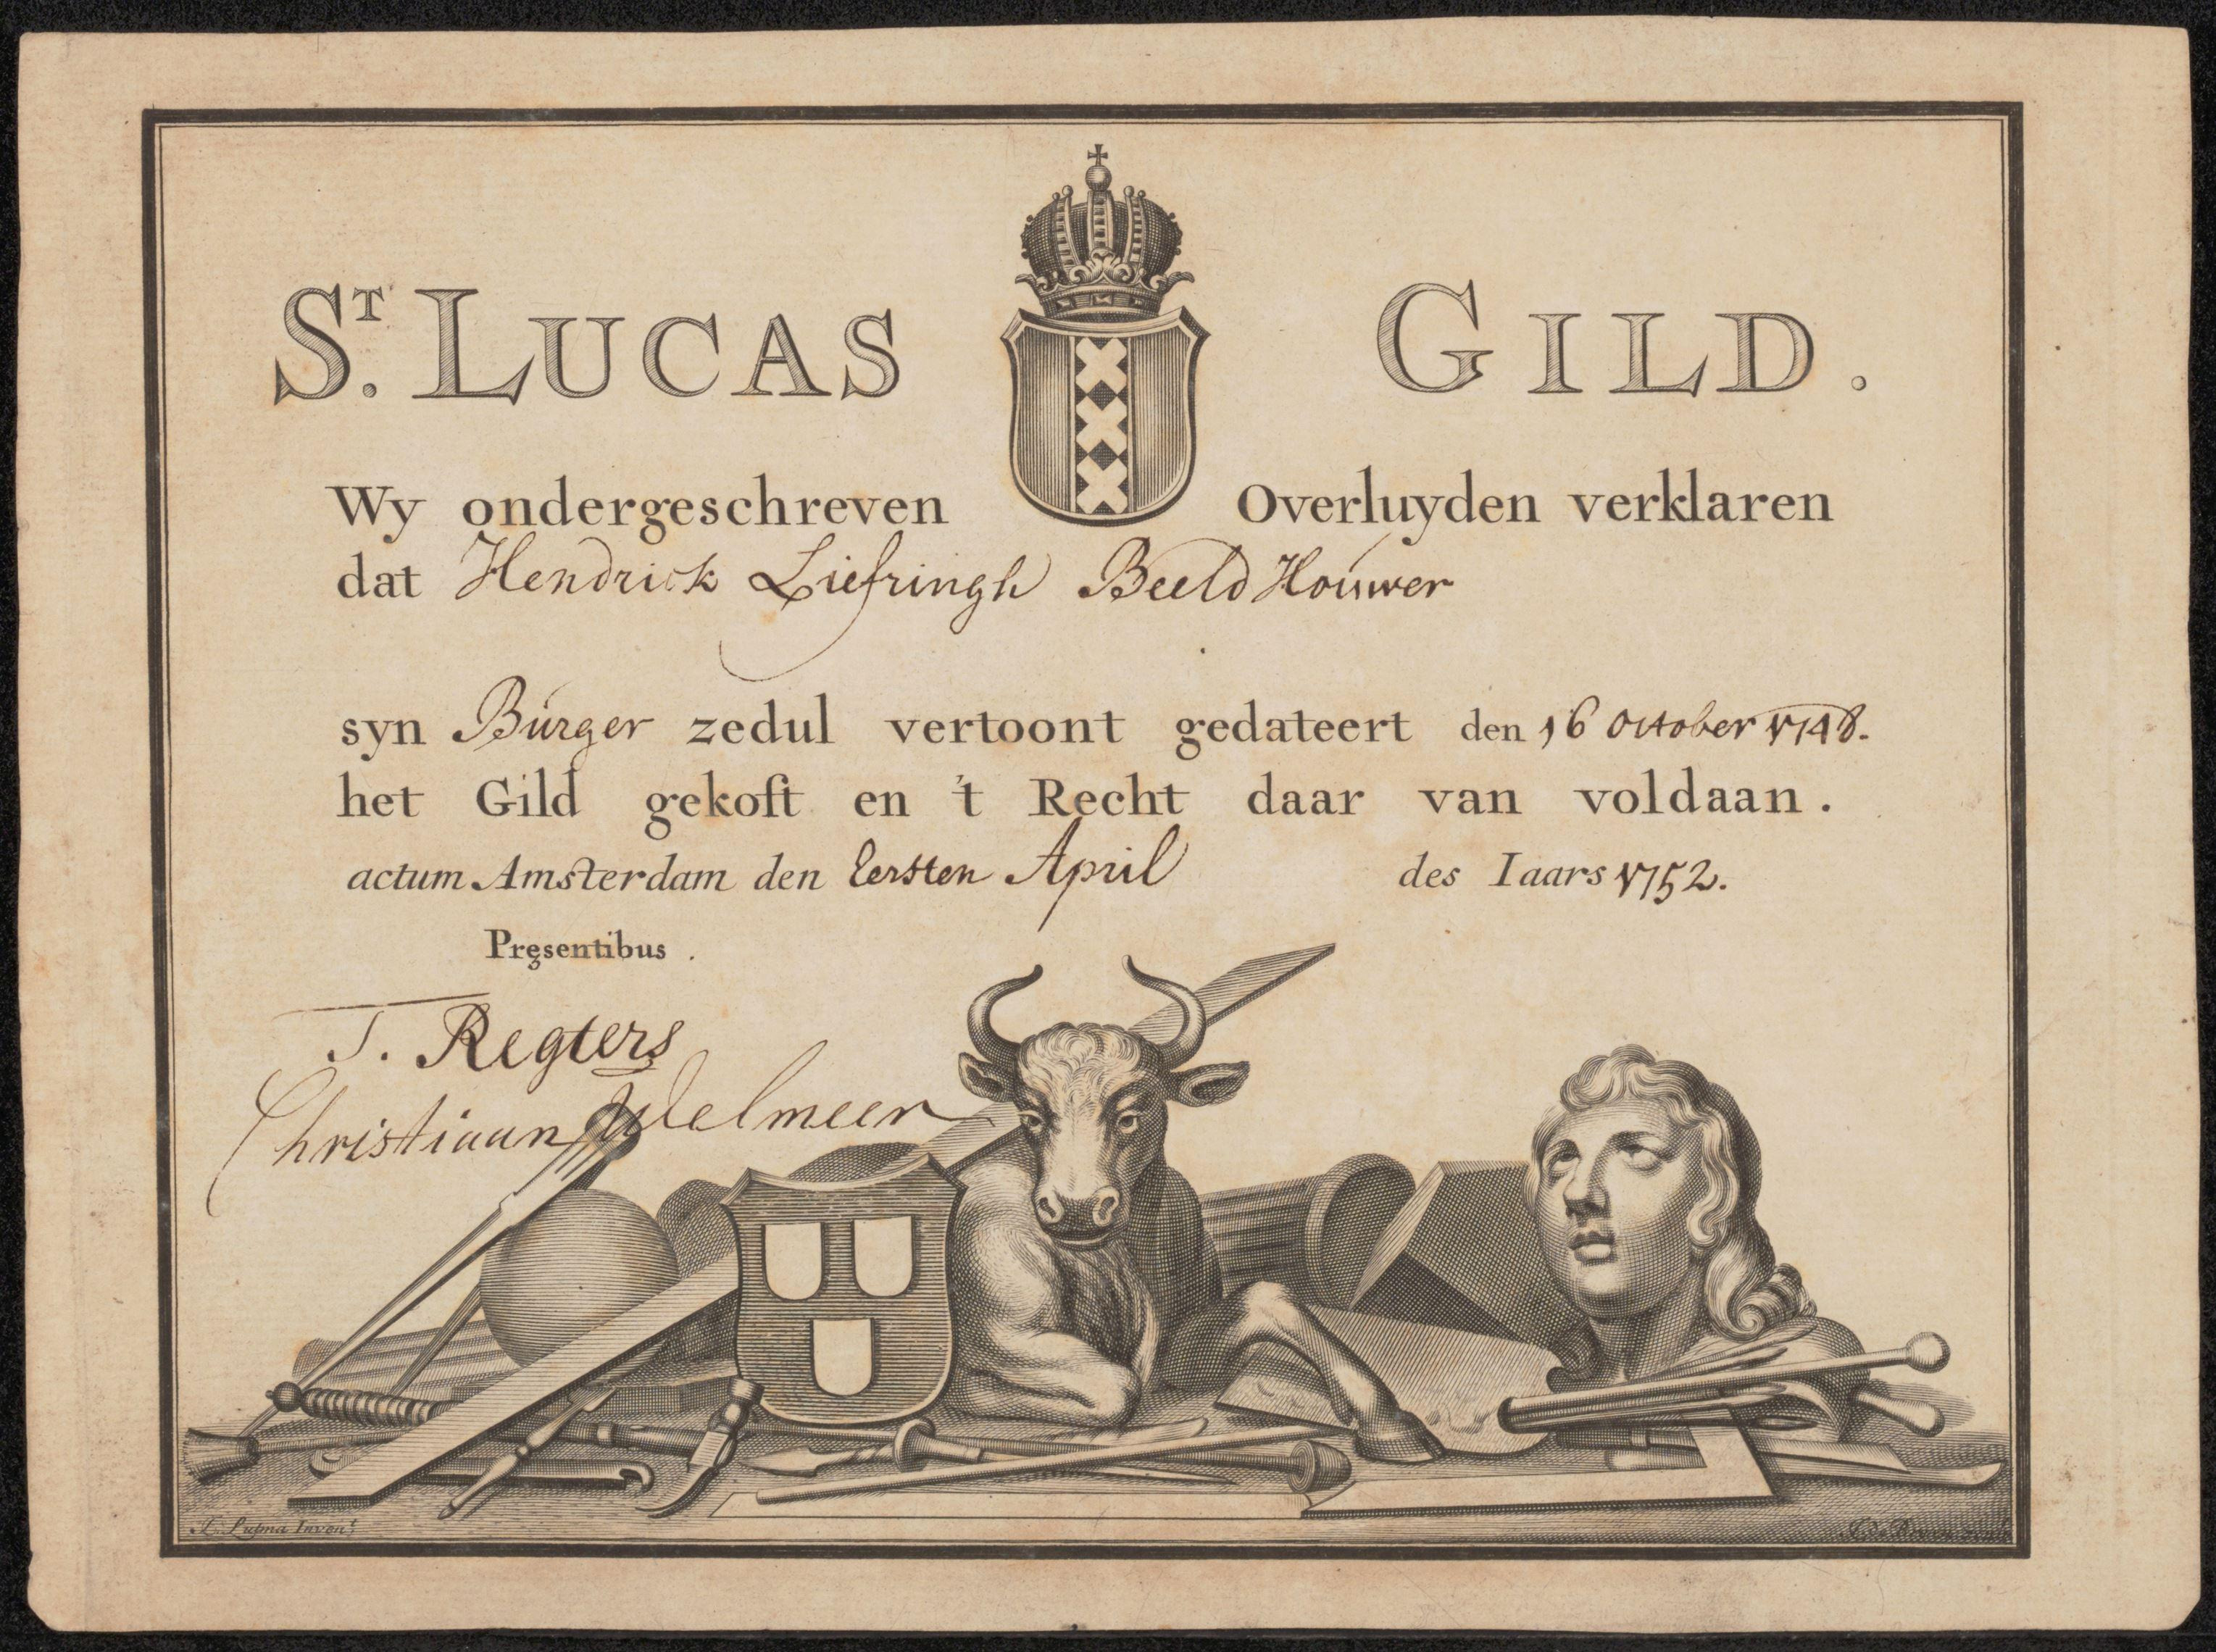 ST. LUCAS GILD.
Wy ondergeschreven Overluyden verklaren
dat Hendrick Liefringh Beeld Houwer
syn Burger zedul vertoont gedateert den 16 October 1748.
het Gild gekoft en 't Recht daar van voldaan.
actum Amsterdam den Eersten April des Iaars 1752.
Pręsentibus.
T. Regters
Christiaan Welmeer
Lupna Invent